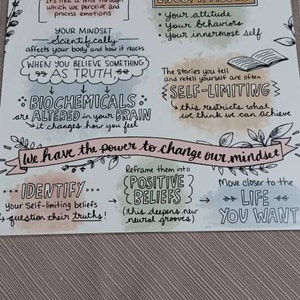 which we perceive and
process emotions
• your attitude
• your behaviors
• your innermost self
YOUR MINDSET
Scientifically
affects your body and how it reacts
WHEN YOU BELIEVE SOMETHING
AS TRUTH
BIOCHEMICALS
are ALTERED in your BRAIN
it changes how you feel
The stories you tell
and retell yourself are often
SELF-LIMITING
this restricts what
we think we can achieve
We have the power to change our mindset
IDENTIFY
your Self-limiting beliefs
question their truths!
Reframe them into
POSITIVE
BELIEFS
(this deepens new
neural grooves)
Move closer to the
LIFE
YOU WANT